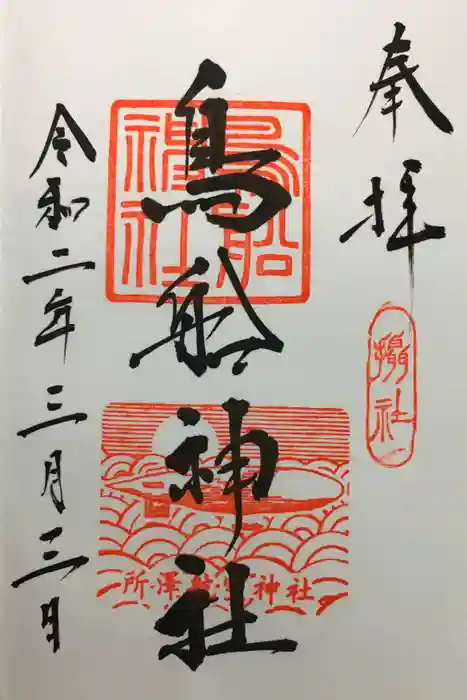 奉拝
摂社
鳥船神社
鳥船神社
所澤航空神社
令和二年三月三日